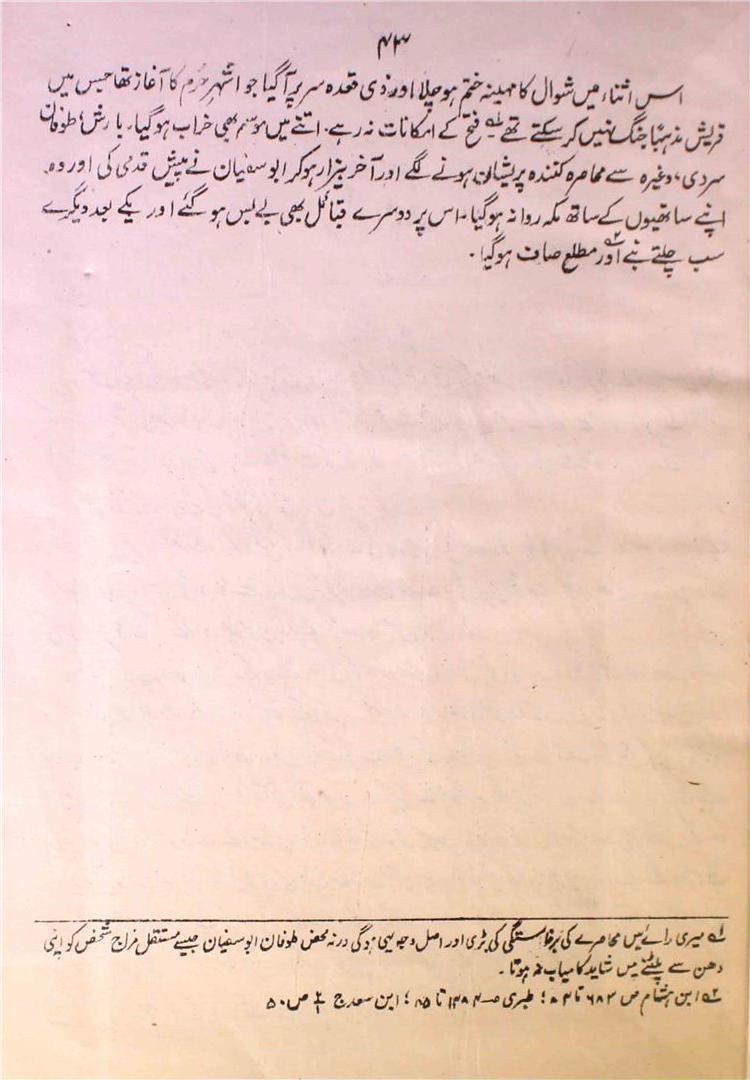 ۴۳
اس اثناء میں شوال کا مہینہ ختم ہو چلا اور ذی قعدہ سر پر آگیا جو اشہر حُرم کا آغاز تھا جس میں
قریش مذہبًا جنگ نہیں کر سکتے تھے۔ لہ فتح کے امکانات نہ رہے۔ اتنے میں موسم بھی خراب ہوگیا۔ بارش، طوفان
سردی، وغیرہ سے محاصرہ کنندہ پریشان ہونے لگے اور آخر بیزار ہوکر ابوسفیان نے پیش قدمی کی اور وہ
اپنے ساتھیوں کے ساتھ مکہ روانہ ہوگیا۔ اس پر دوسرے قبائل بھی بے بس ہوگئے اور یکے بعد دیگرے
سب چلتے بنے ۲؎ اور مطلع صاف ہوگیا۔
۱؎ میری رائے میں محاصرے کی برخاستگی کی بڑی اور اصل وجہ یہی ہوگی ورنہ محض طوفان ابوسفیان جیسے مستقل مزاج شخص کو اپنی
دھن سے پلٹنے میں شاید کامیاب نہ ہوتا۔
۲؎ ابن ہشام ص ۶۸۲ تا ۸۴؛ طبری صـ ۱۴۸۴ تا ۸۵؛ ابن سعد ج ۲/۱ ص ۵۰